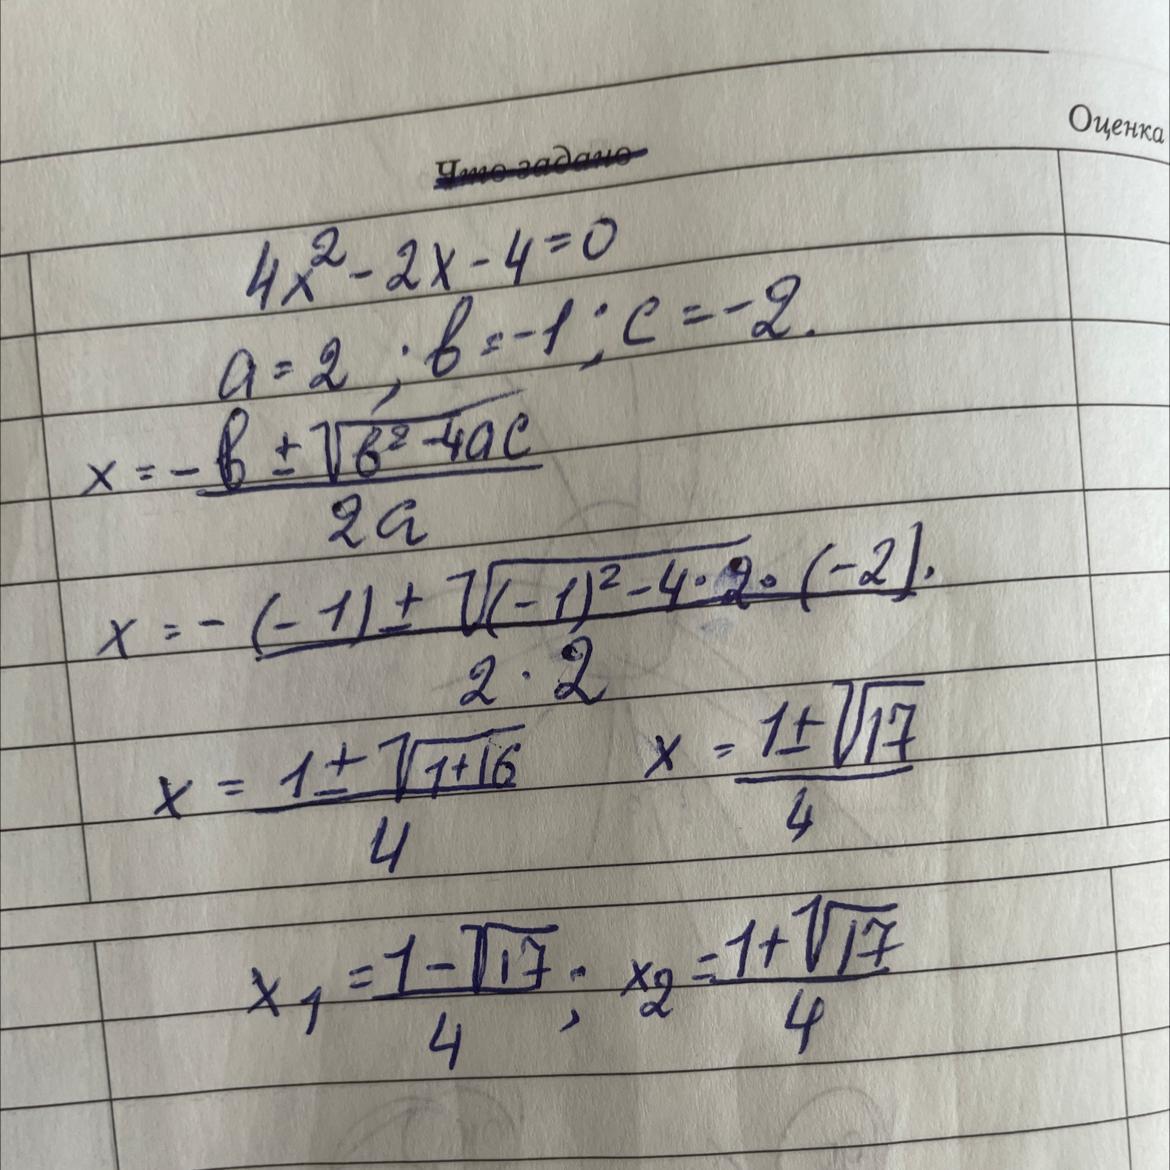 Оценка
Что задано
4x² - 2x - 4 = 0
a = 2 ; в = -1 ; c = -2.
x = -в ± √(в² - 4ac) / 2a
x = -(-1) ± √((-1)² - 4 · 2 · (-2]. / 2 · 2
x = 1 ± √(1+16) / 4   x = 1 ± √17 / 4
x₁ = 1 - √17 / 4 ; x₂ = 1 + √17 / 4